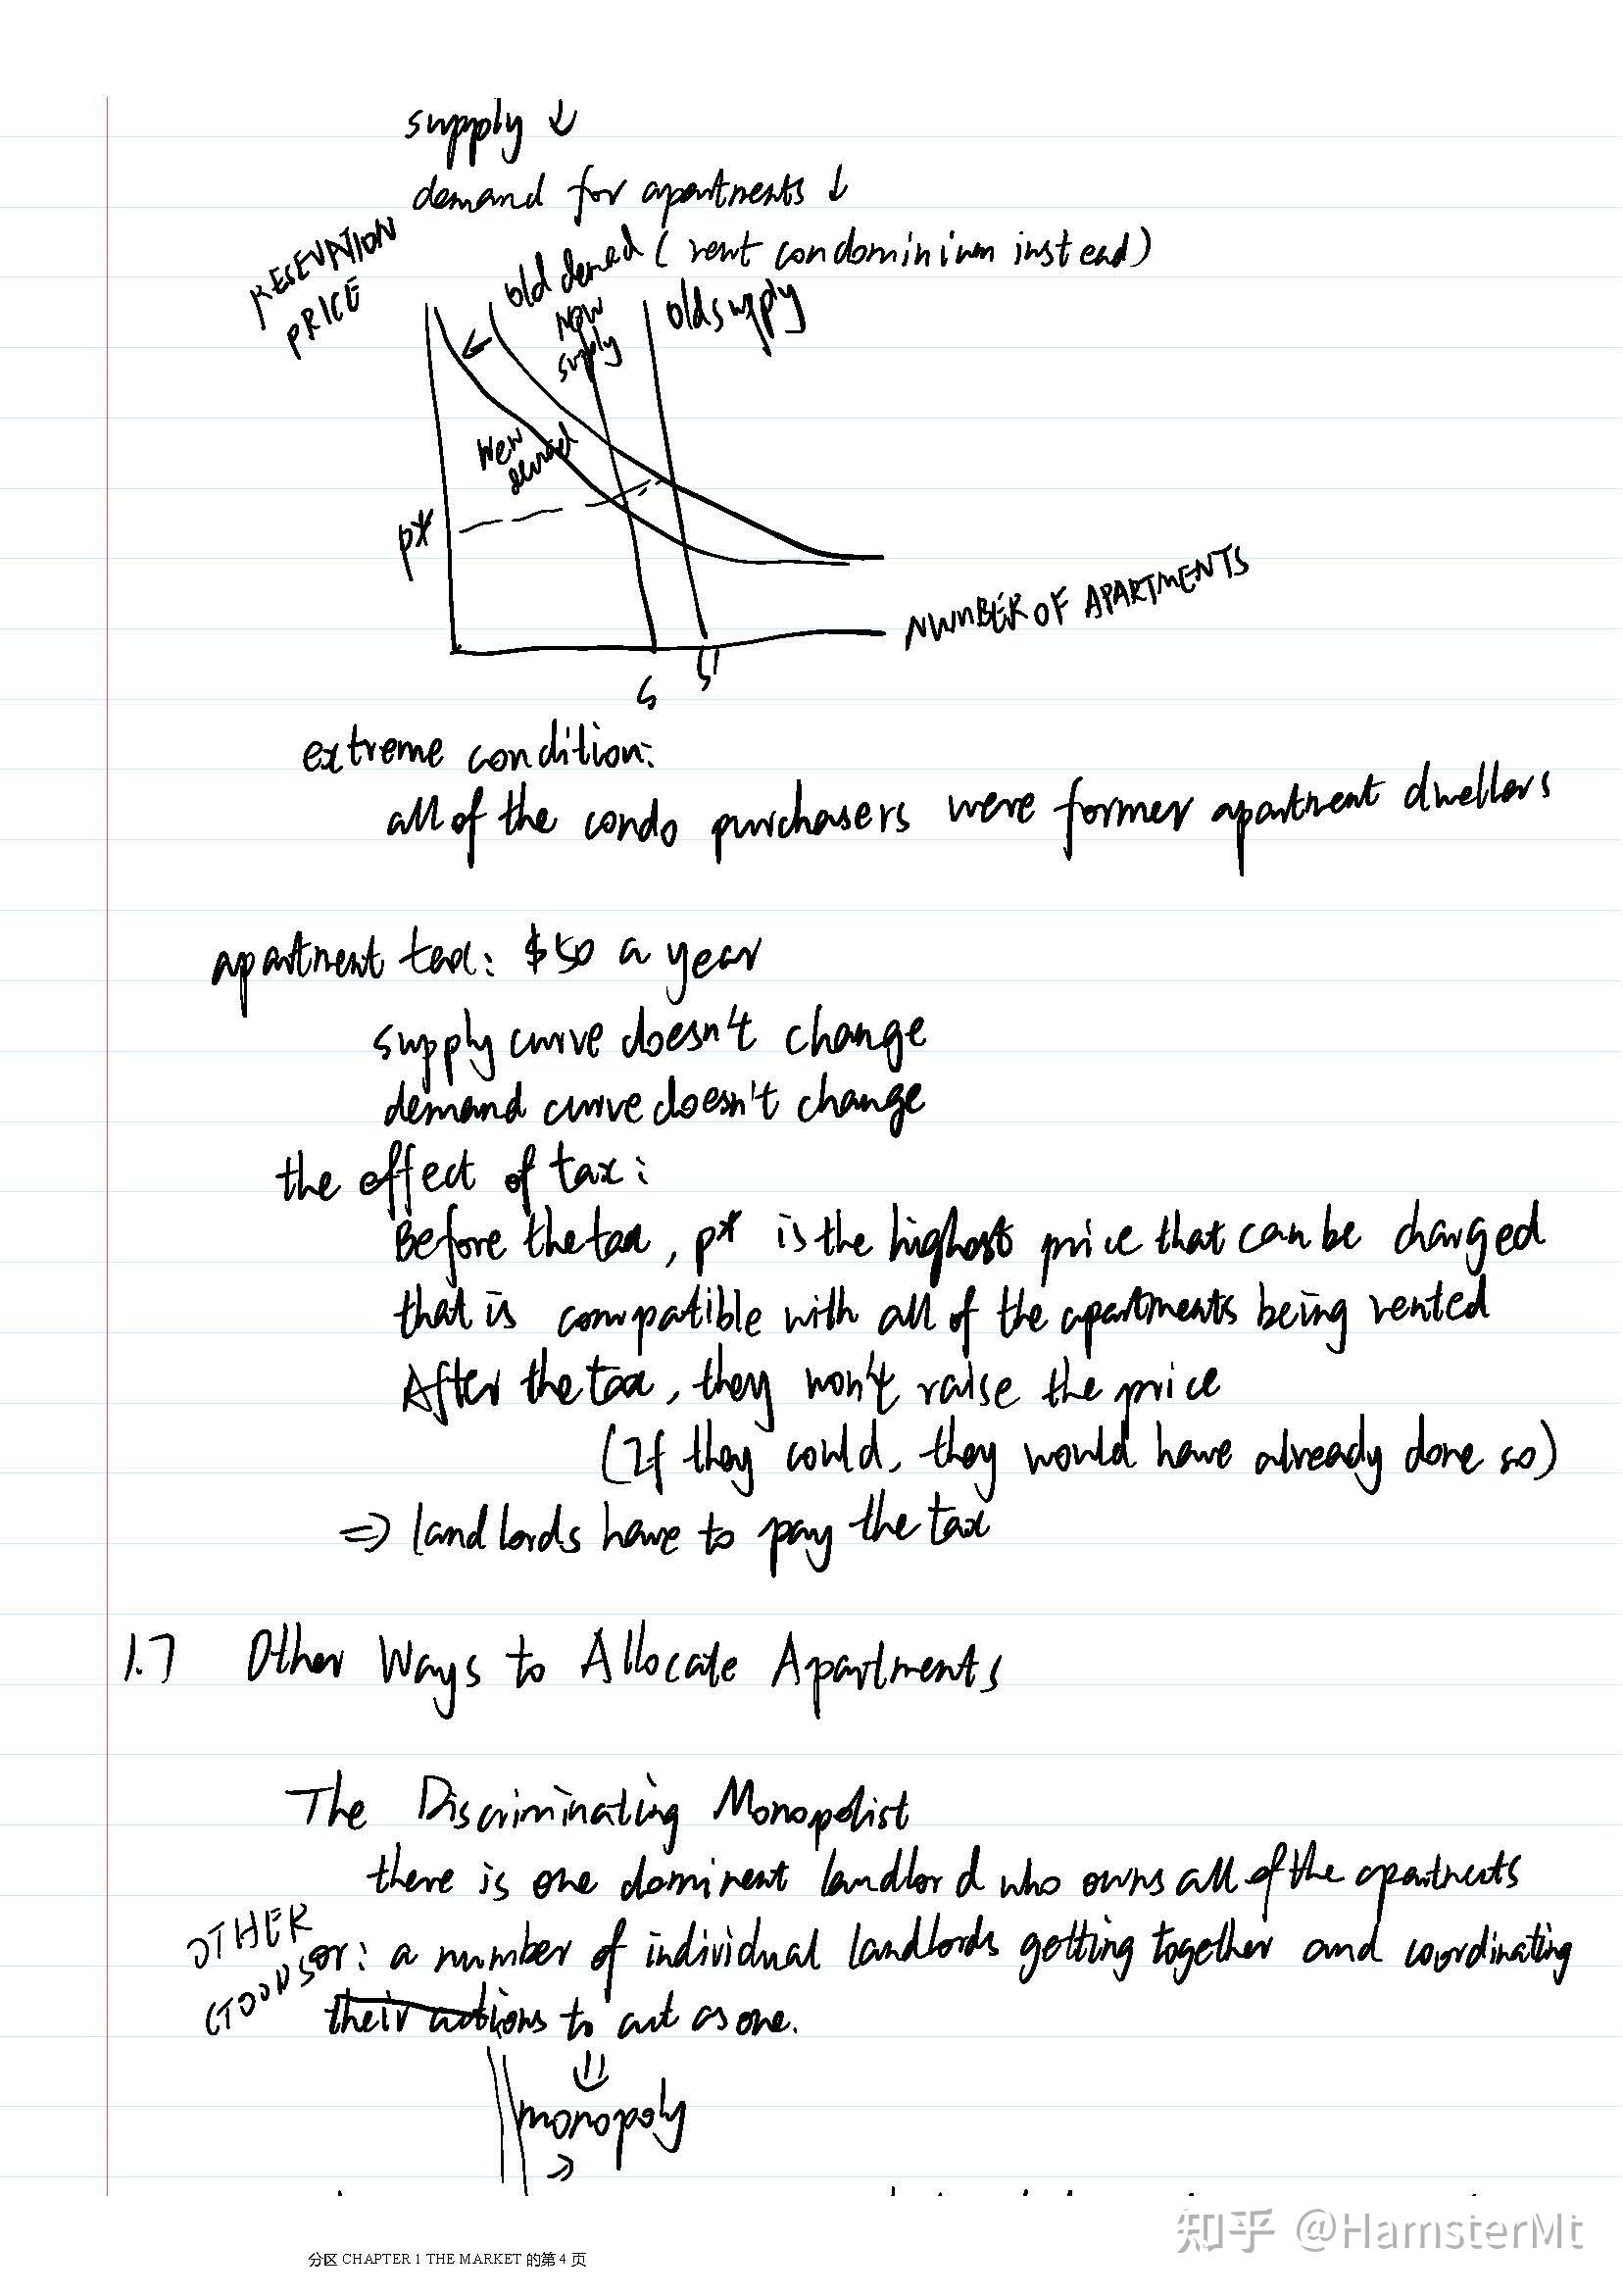 supply ↓
demand for apartments ↓
(rent condominium instead)
RESEVATION
PRICE
old demad
New
supply
old supply
New
demad
p*
NUMBER OF APARTMENTS
S
S'
extreme condition:
all of the condo purchasers were former apartment dwellers
apartment tax: $50 a year
supply curve doesn't change
demand curve doesn't change
the effect of tax:
Before the tax, p* is the highest price that can be charged
that is compatible with all of the apartments being rented
After the tax, they won't raise the price
(If they could, they would have already done so)
⇒ landlords have to pay the tax
1.7 Other Ways to Allocate Apartments
The Discriminating Monopolist
there is one dominent landlord who owns all of the apartments
OTHER
or: a number of individual landlords getting together and coordinating
their actions to act as one.
⇓
monopoly
→
知乎 @HamsterMt
分区 CHAPTER 1 THE MARKET 的第 4 页